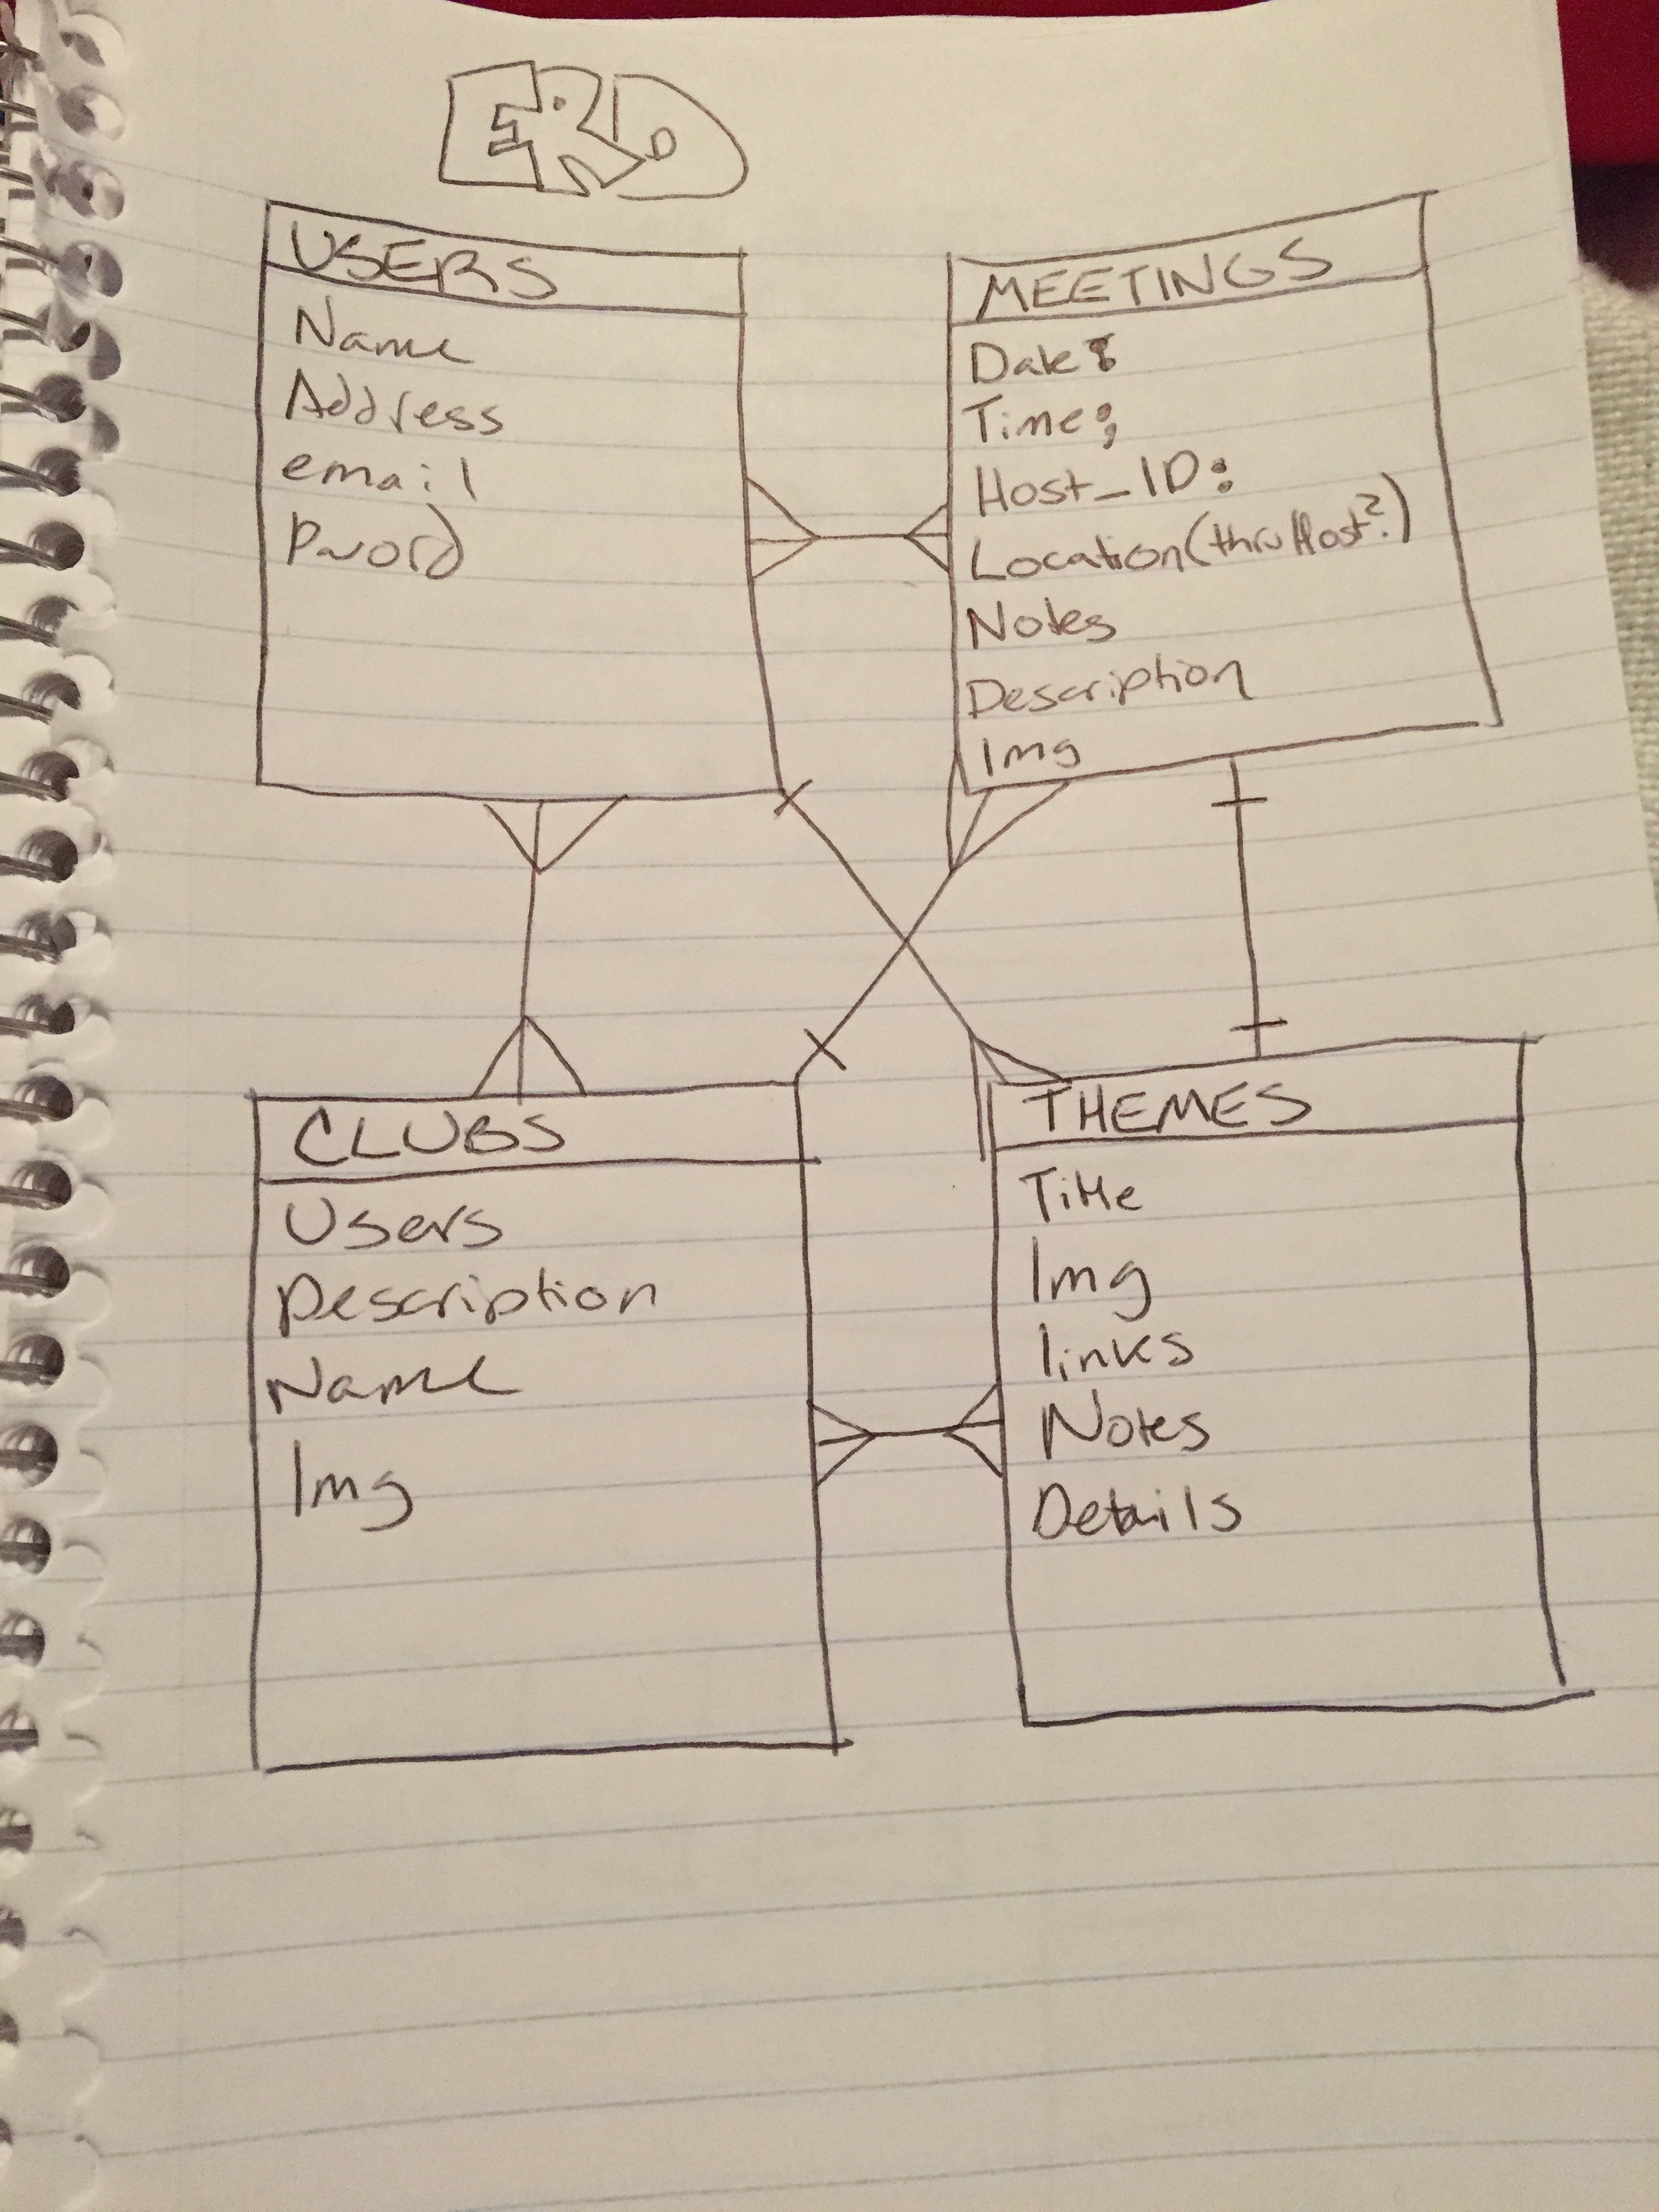 ERD
USERS
Name
Address
email
Pword
MEETINGS
Date:
Time:
Host_ID:
Location (thru Host?)
Notes
Description
Img
CLUBS
Users
Description
Name
Img
THEMES
Title
Img
links
Notes
Details